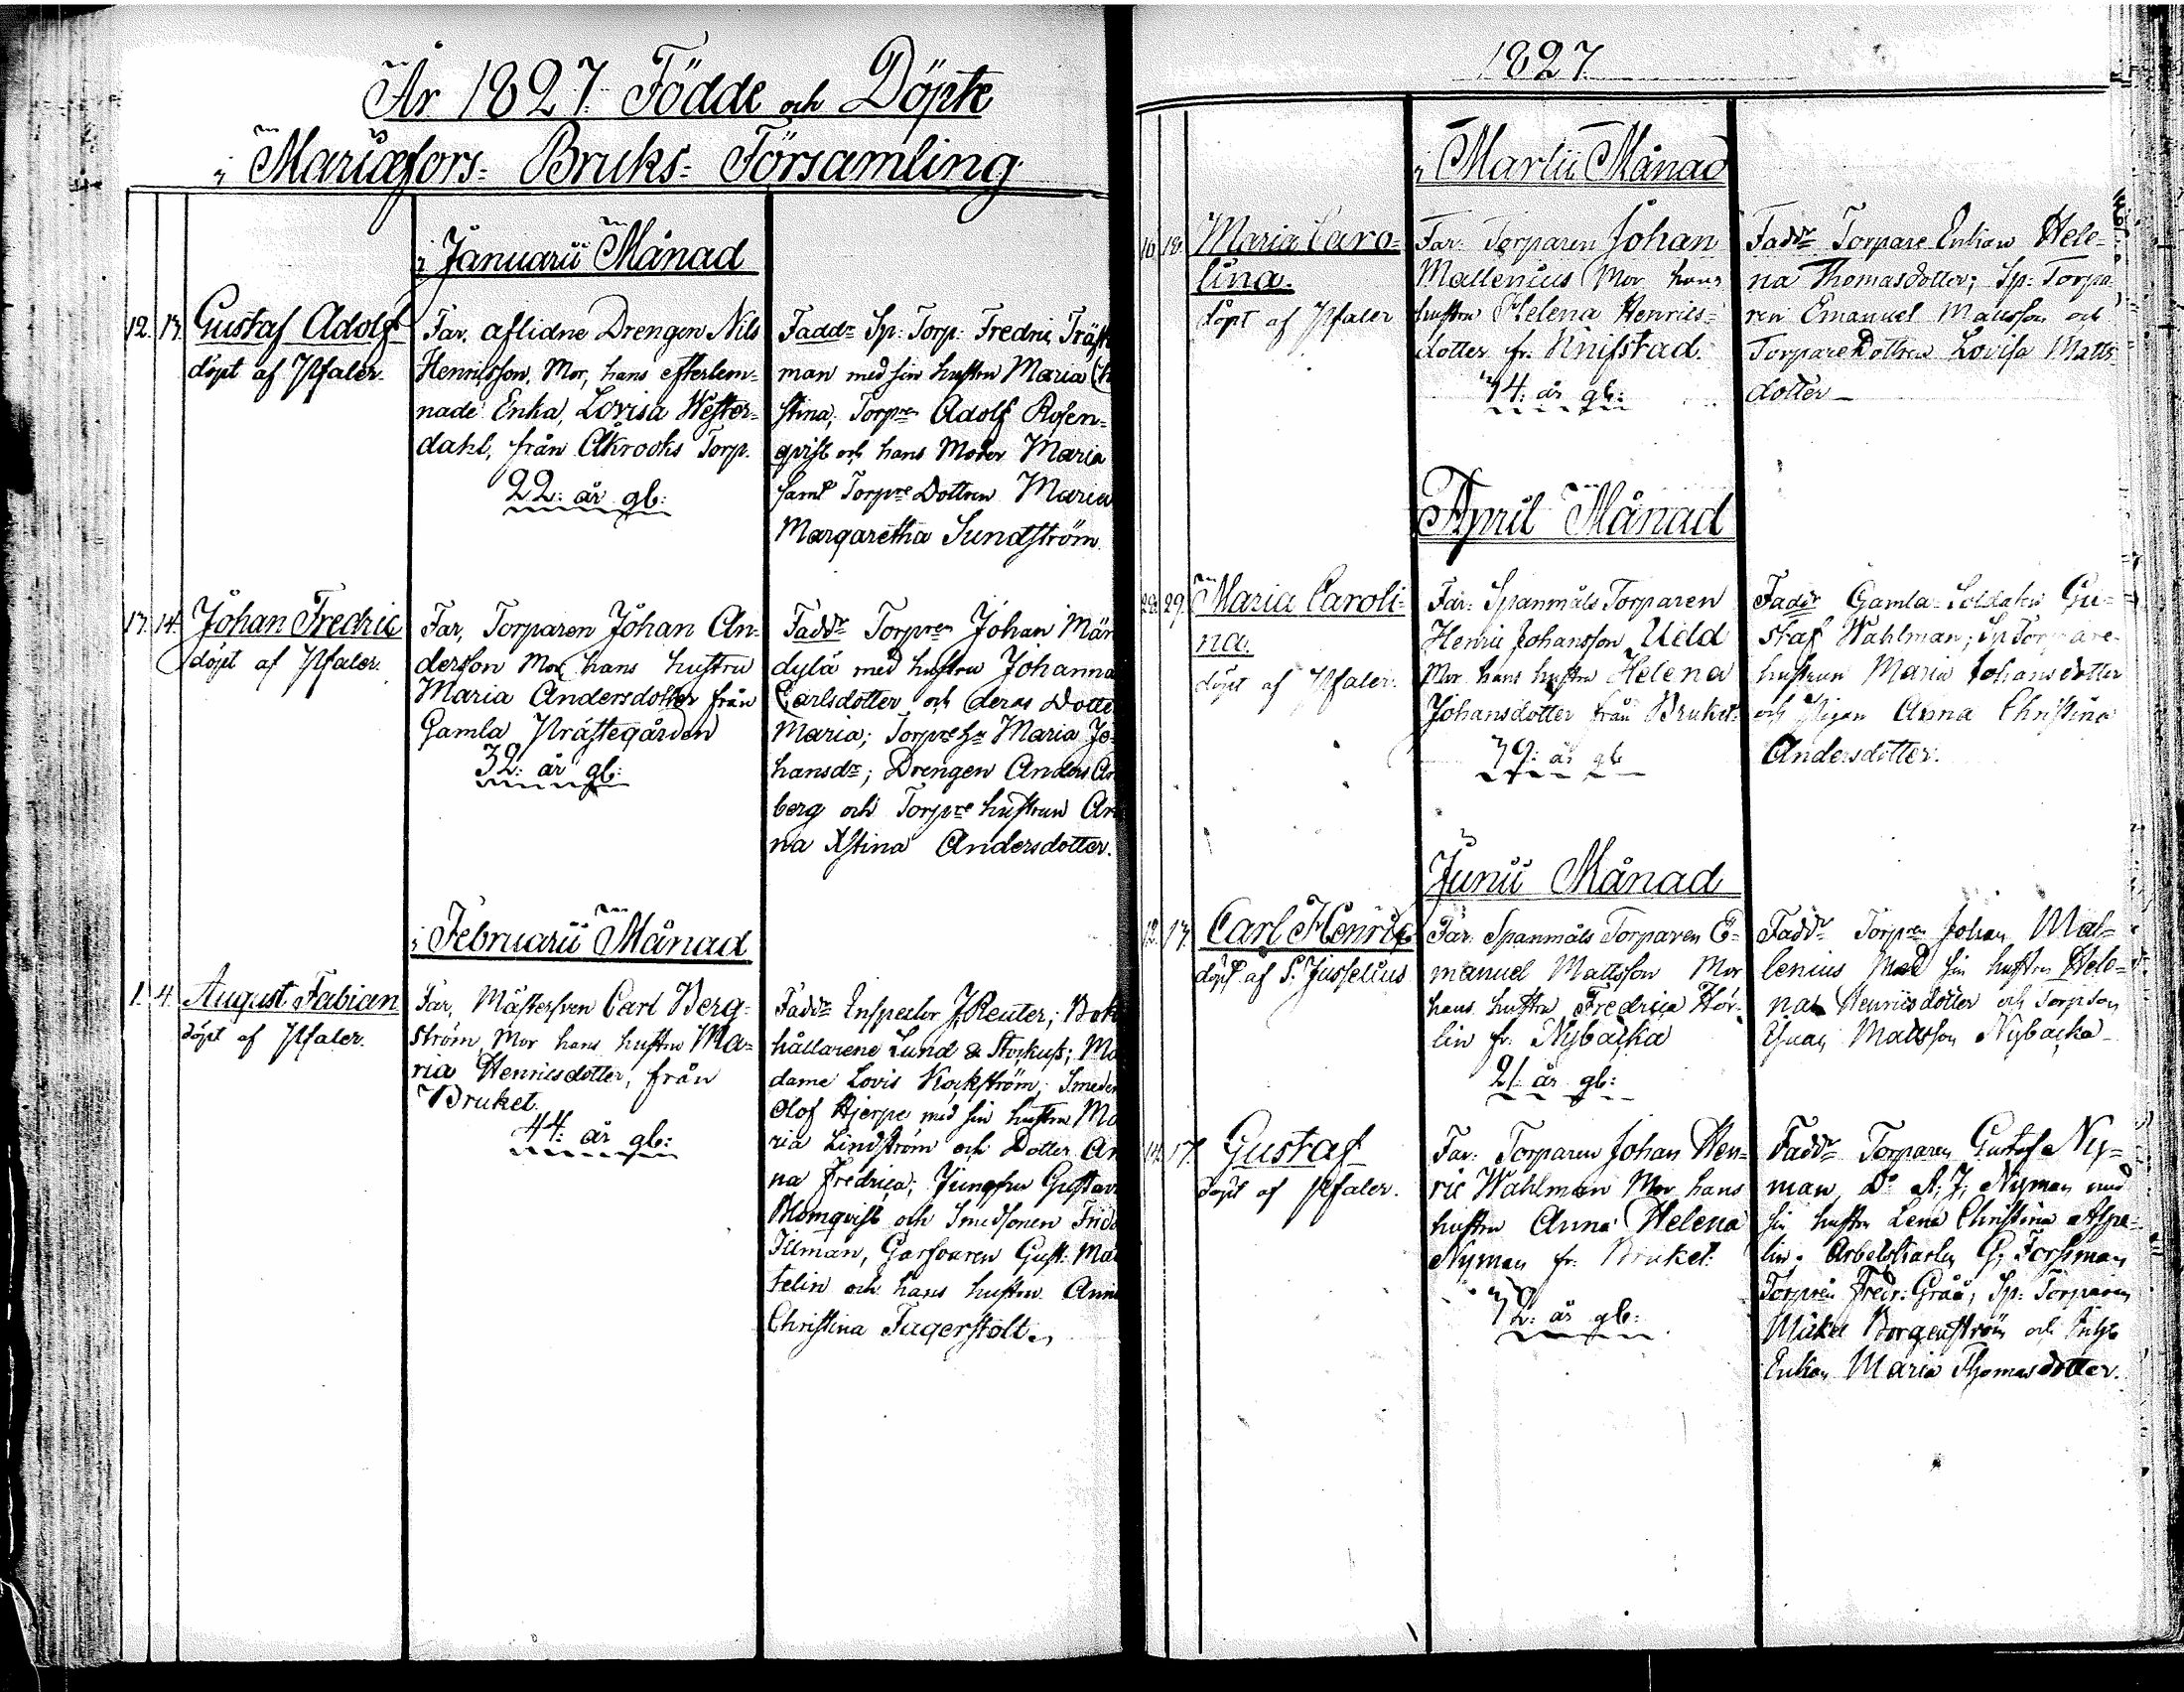 År 1827. Födde och Döpte
i Mariæfors- Bruks- Församling
i Januarii Månad
12. 13. Gustaf Adolf
döpt af Pfaler.
Far, aflidne Drengen Nils
Henricsson, Mor, hans efterlem-
nade Enka, Lovisa Wester-
dahl, från Åkrooks Torp.
22: år gl:
Faddr Sp: Torp: Fredric Träsk
man med sin hustru Maria Ch
stina; Torpren Adolf Rosen-
qvist och hans Moder Maria
samt Torpre Dottren Maria
Margaretha Sundström.
13. 14. Johan Fredric
döpt af Pfaler.
Far, Torparen Johan An-
dersson Mor hans hustru
Maria Andersdotter från
Gamla Prästegården
32: år gl:
Faddr Torpren Johan Män
dylä med hustru Johanna
Carlsdotter och deras Dotte
Maria; Torpre hu Maria Jo-
hansdr; Drengen Anders
berg och Torpre hustrun An
na Xstina Andersdotter.
i Februarii Månad
1. 4. August Fabian
döpt af Pfaler.
Far, Mästersven Carl Berg-
ström, Mor hans hustru Ma-
ria Henricsdotter, från
Bruket.
44: år gl:
Faddr Inspector J. Reuter; Bok
hållarene Lund & Storkuss; Ma
dame Lovis Kockström; Smeden
Olof Hjerpe med sin hustru Ma
ria Lindström och Dotter An
na Fredrica; Jungfru Gustav
Blomqvist och Smedsonen Frid
Illman, Garfvaren Gust: Mar
telin och hans hustru Ann
Christina Fagerstolt.
1827.
i Martii Månad
16 18. Maria Caro-
lina.
döpt af Pfaler
Far: Torparen Johan
Mallenius Mor hans
hustru Helena Henrics-
dotter fr. Knifstad.
34: år gl:
Faddr Torpare Enkan Hele-
na Thomasdotter; Sp: Torpa
ren Emanuel Mattsson och
Torpare Dottren Lovisa Matts
dotter
April Månad
28. 29. Maria Caroli-
na.
döpt af Pfaler.
Far: Spanmåls Torparen
Henric Johansson Udd
Mor hans hustru Helena
Johansdotter från Bruket.
39: år gl
Faddr Gamla Soldaten Gu-
staf Wahlman; Sp Torpare-
hustrun Maria Johansdotter
och Pigan Anna Christina
Andersdotter.
Junii Månad
12. 13. Carl Henric
döpt af S. Jusselius
Far: Spanmåls Torparen E-
manuel Mattsson Mor
hans hustru Fredrica Hör-
lin fr. Nybacka
21 år gl:
Faddr Torpren Johan Mal-
lenius med sin hustru Hele-
na Henricsdotter och Torpson
Mattsson Nybacka
14. 17. Gustaf
döpt af Pfaler.
Far: Torparen Johan Hen-
ric Wahlman Mor hans
hustru Anna Helena
Nyman fr. Bruket.
32: år gl:
Faddr Torparen Gustaf Ny-
man, Do A: J: Nyman med
sin hustru Lena Christina Aspe-
lin; Arbetskarlen G: Forssman
Torpren Fredr: Grää; Sp: Torparen
Mickel Borgenström och
Enkan Maria Thomasdotter.